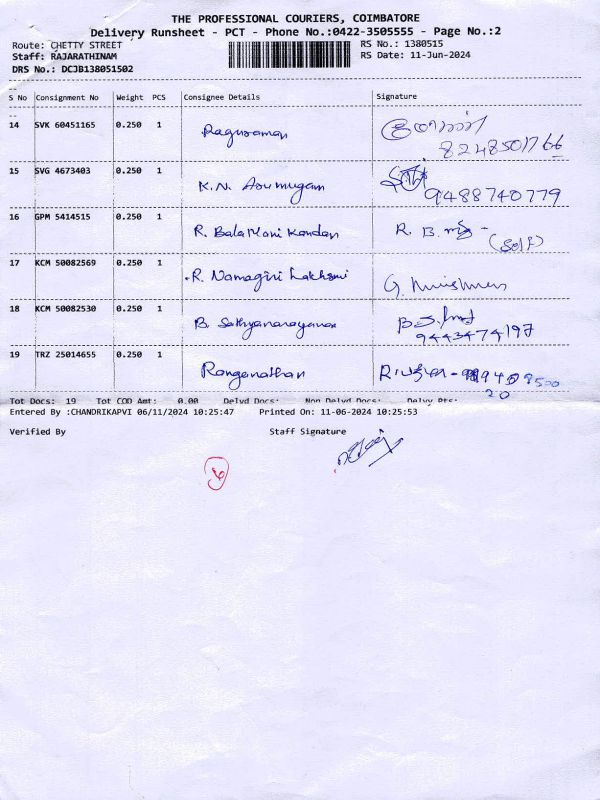 THE PROFESSIONAL COURIERS, COIMBATORE
Delivery Runsheet - PCT - Phone No.:0422-3505555 - Page No.:2
Route: CHETTY STREET RS No.: 1380515
Staff: RAJARATHINAM RS Date: 11-Jun-2024
DRS No.: DCJB138051502
S No Consignment No Weight PCS Consignee Details Signature
14 SVK 60451165 0.250 1 Raguraman
8248501766
15 SVG 4673403 0.250 1 K.N. Arumugam
9488740779
16 GPM 5414515 0.250 1 R. BalaMani kandan R. B.
(Self)
17 KCM 50082569 0.250 1 R. Namagiri Lakhsmi G.
18 KCM 50082530 0.250 1 B. Sathyanarayanan B.S.
9443474197
19 TRZ 25014655 0.250 1 Ranganathan
Tot Docs: 19 Tot COD Amt: 0.00 Delvd Docs: Non Delvd Docs: Delvy Pts:
Entered By :CHANDRIKAPVI 06/11/2024 10:25:47 Printed On: 11-06-2024 10:25:53
Verified By Staff Signature